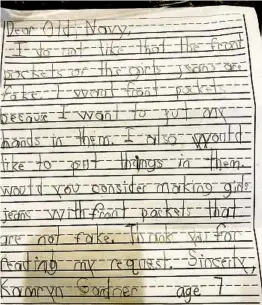 Dear Old Navy,
I do not like that the front
pockets of the girls jeans are
fake. I want front pockets
because I want to put my
hands in them. I also would
like to put things in them.
would you consider making girls
jeans with front pockets that
are not fake. Thank you for
reading my request. Sincerly,
Kamryn Gardner age 7